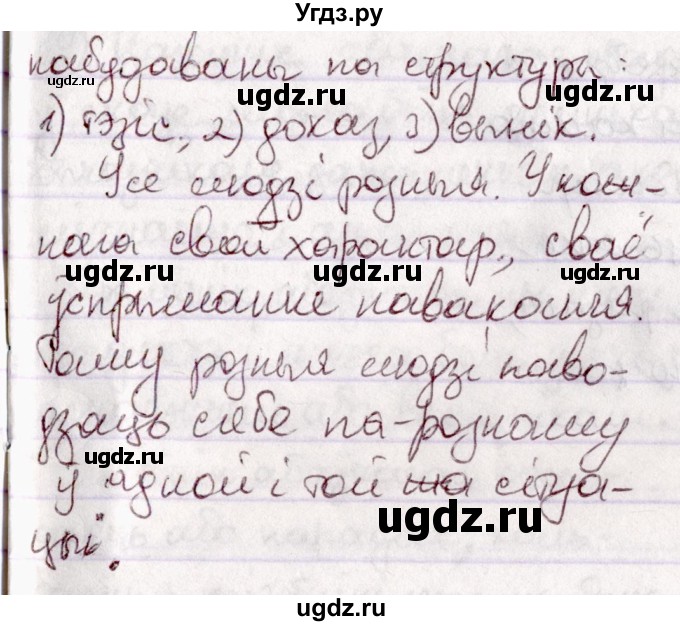 Угдз.ру
пабудаваны па структуры:
ugdz.ru ugdz.ru ugdz.ru
1) тэзіс, 2) доказ, 3) вынік.
Усе людзі розныя. У кож-
нага свой характар, сваё
ugdz.ru ugdz.ru ugdz.ru
ўспрыманне наваколля.
Таму розныя людзі паво-
дзяць сябе па-рознаму
ugdz.ru ugdz.ru
ў адной і той жа сітуа-
цыі.
ugdz.ru
ugdz.ru